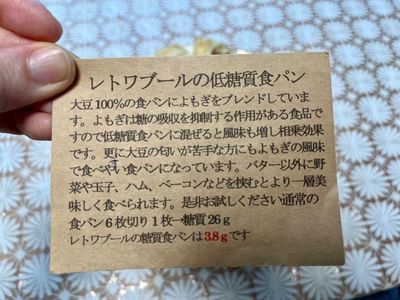 レトワブールの低糖質食パン
大豆100%の食パンによもぎをブレンドしていま
す。よもぎは糖の吸収を抑制する作用がある食品で
すので低糖質食パンに混ぜると風味も増し相乗効果
です。更に大豆の匂いが苦手な方にもよもぎの風味
で食べやすい食パンになっています。バター以外に野
菜や玉子、ハム、ベーコンなどを挟むとより一層美
味しく食べられます。是非お試しください通常の
食パン6枚切り1枚→糖質26g
レトワブールの糖質食パンは3.8gです